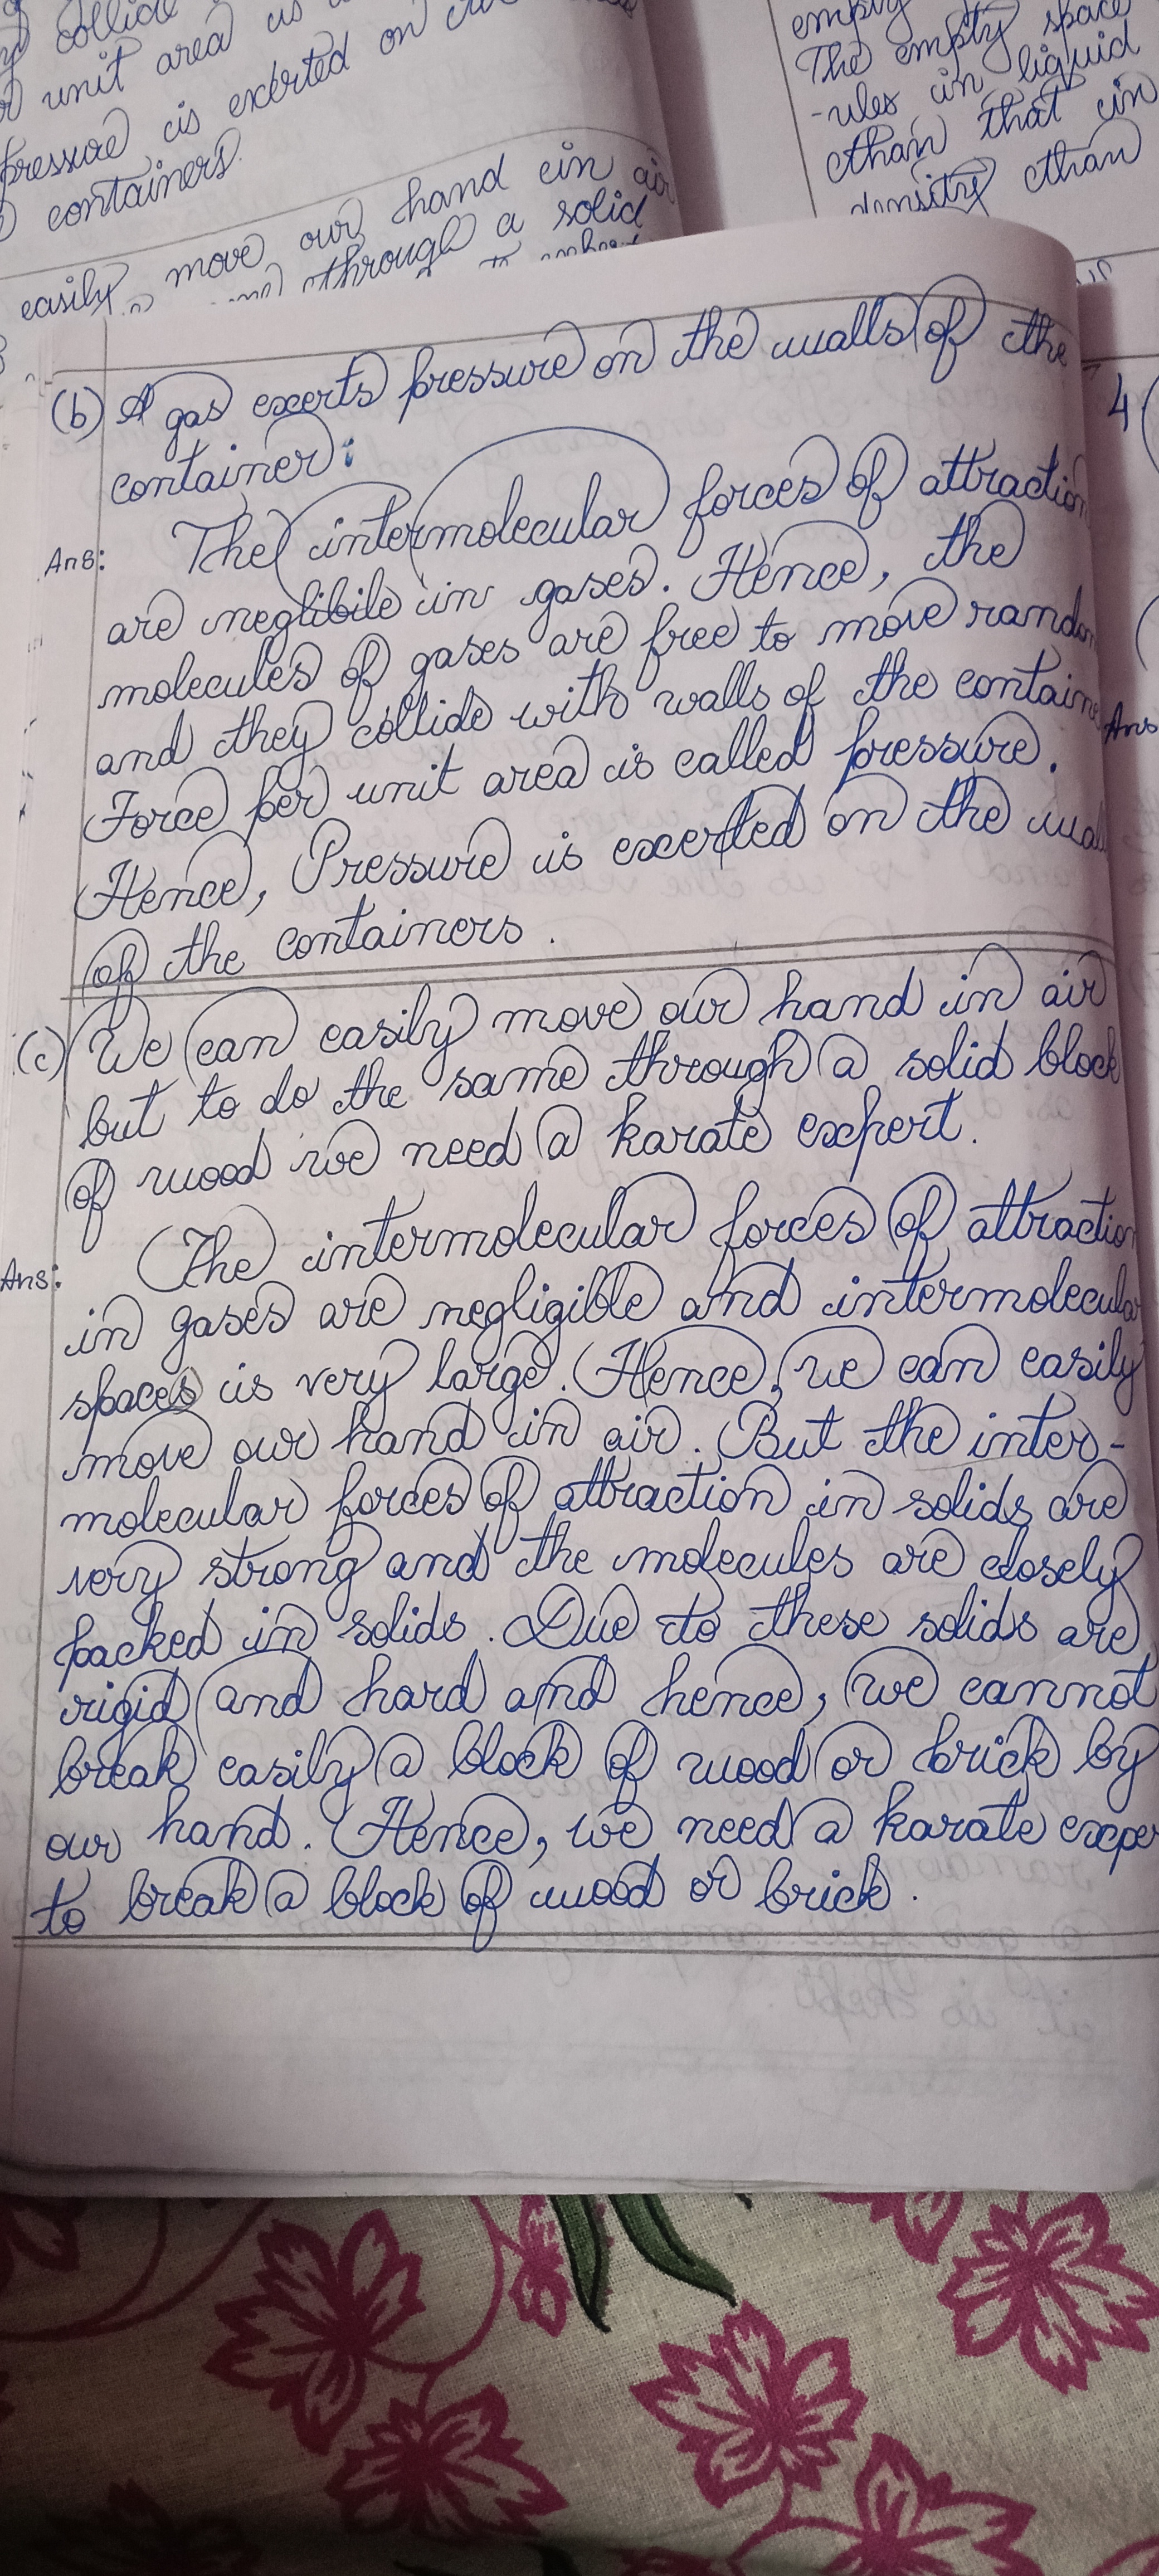 collide
unit area is
pressure is exerted on
containers.
easily move our hand in air
through a solid
empty
The empty space
-ules in liquid
than that in
density than
(b) A gas exerts pressure on the walls of the
container:
Ans: The intermolecular forces of attraction
are neglibile in gases. Hence, the
molecules of gases are free to move random
and they collide with walls of the contain
Force per unit area is called pressure.
Hence, Pressure is exerted on the wall
of the containers.
(c) We can easily move our hand in air
but to do the same through a solid block
of wood we need a karate expert.
Ans: The intermolecular forces of attraction
in gases are negligible and intermolecular
spaces is very large. Hence, we can easily
move our hand in air. But the inter-
molecular forces of attraction in solids are
very strong and the molecules are closely
packed in solids. Due to these solids are
rigid and hard and hence, we cannot
break easily a block of wood or brick by
our hand. Hence, we need a karate expe
to break a block of wood or brick.
4
Ans